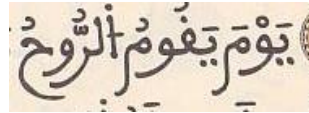 يَوْمَ يَقُومُ اُ۬لرُّوحُ